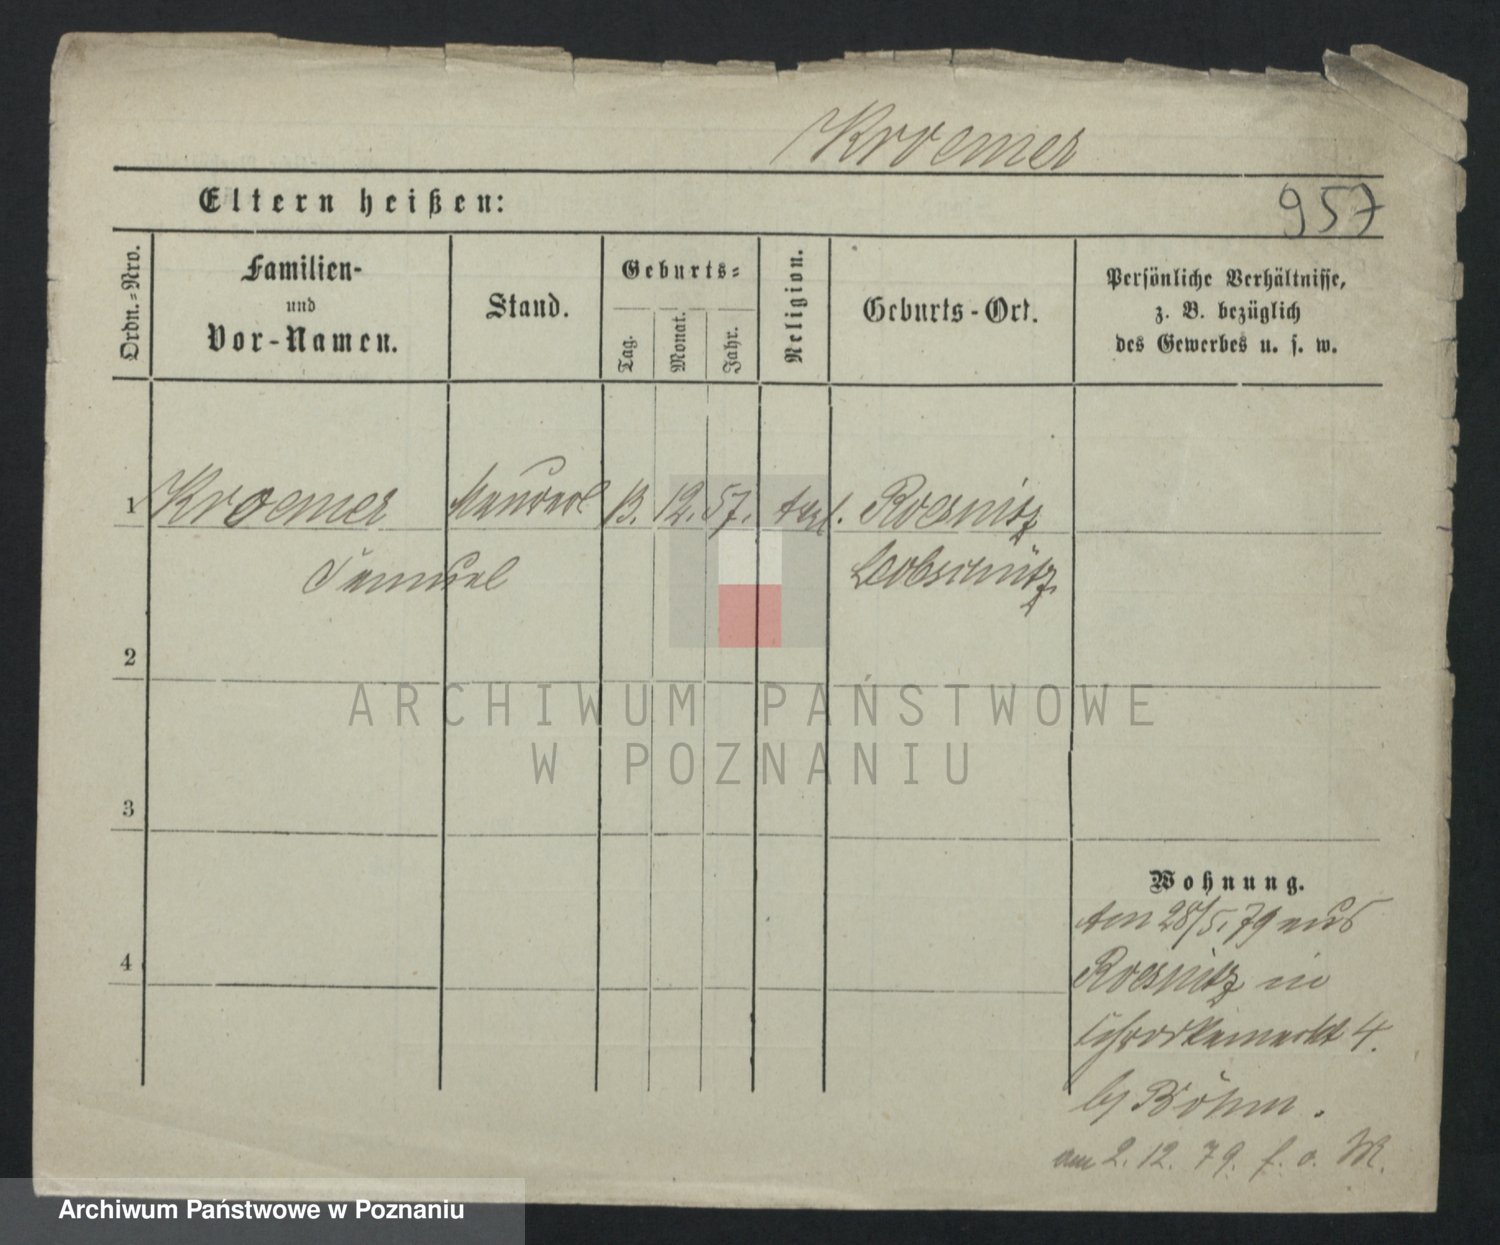 Kroemer
Eltern heißen:
957
Ordn.=Nro.
Familien-
und
Vor-Namen.
Stand.
Geburts=
Tag.
Monat.
Jahr.
Religion.
Geburts-Ort.
Persönliche Verhältnisse,
z. B. bezüglich
des Gewerbes u. s. w.
1 Kroemer 13. 12. 57. Roesnitz
Samuel Leobschütz
2
ARCHIWUM PAŃSTWOWE
W POZNANIU
3
Wohnung.
Am 28/5. 79 aus
4
Roesnitz in
Schrodkamarkt 4.
by Böhm.
am 2. 12. 79. f. o. M.
Archiwum Państwowe w Poznaniu